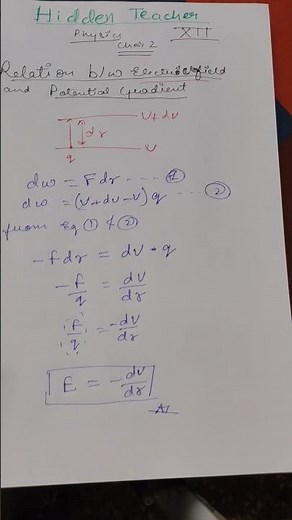 Hidden Teacher
Physics XII
Chap 2
Relation b/w Electric field
and Potential Gradient
V+dv
dr
V
q
dw = Fdr ---- ①
dw = (V+dv-V)q ---- ②
from Eq ① & ②
-fdr = dv · q
-f/q = dV/dr
f/q = -dV/dr
E = -dV/dr